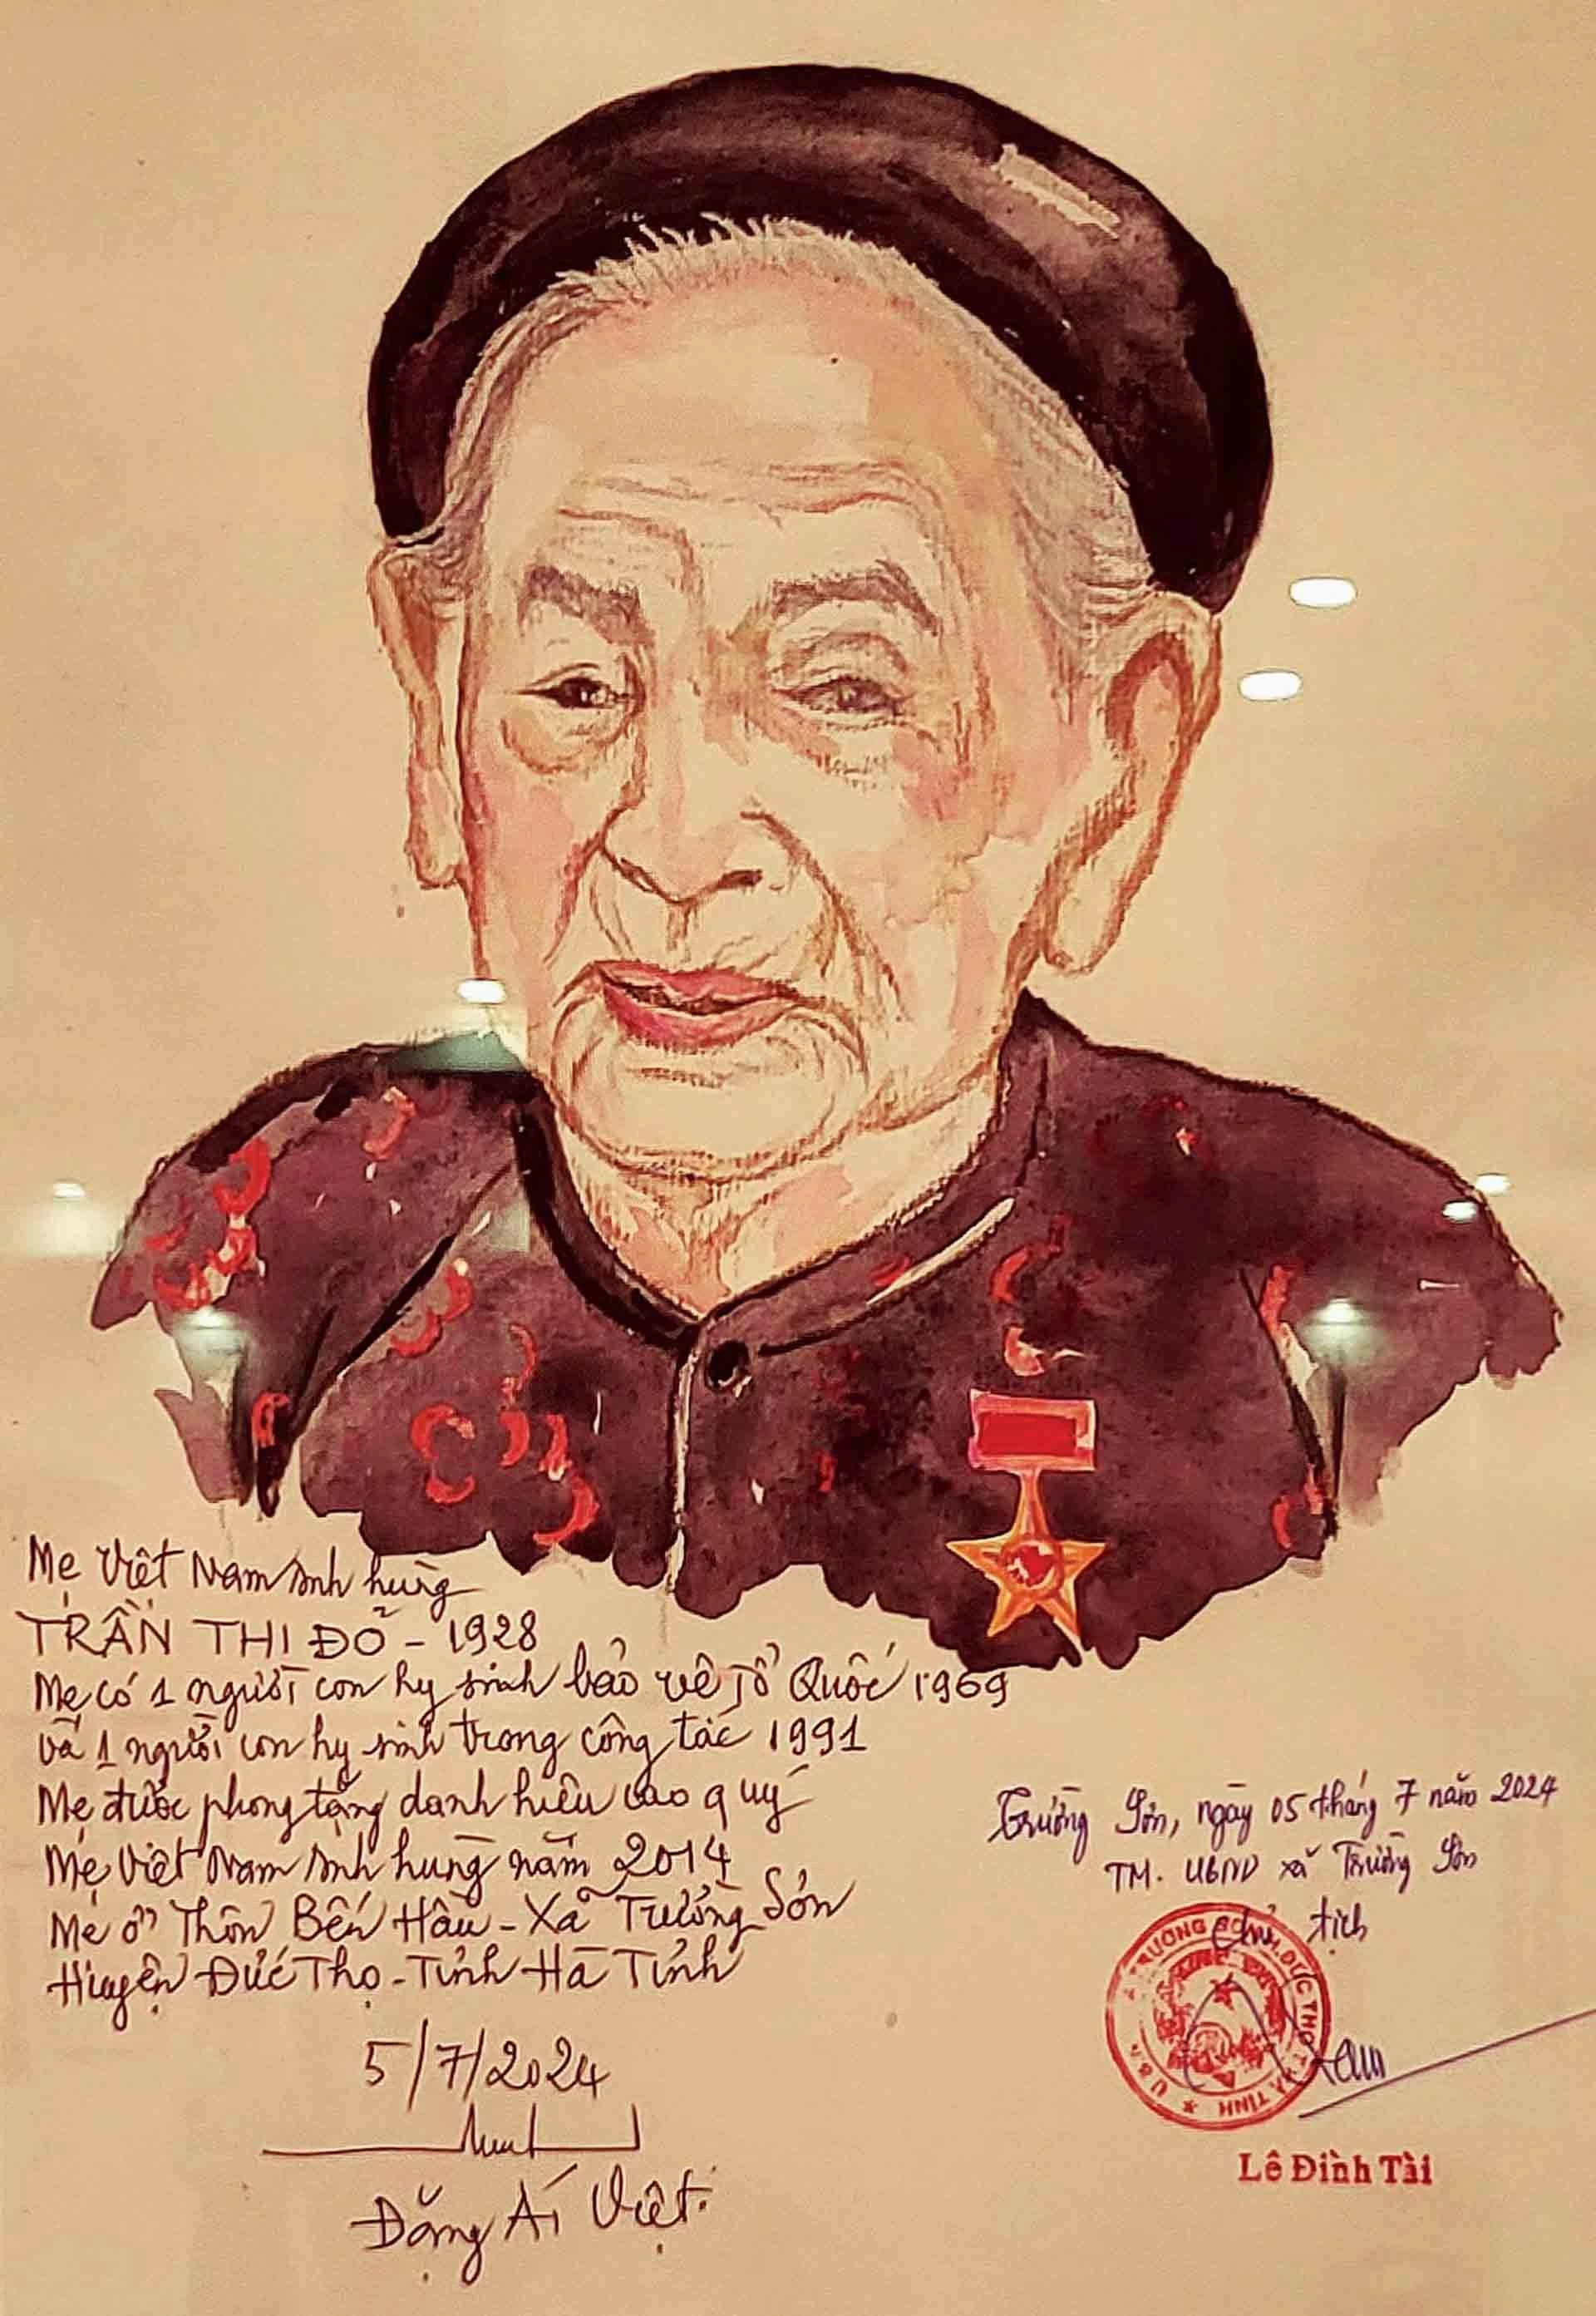 Mẹ Việt Nam Anh hùng
TRẦN THỊ ĐỎ - 1928
Mẹ có 1 người con hy sinh bảo vệ Tổ Quốc 1969
và 1 người con hy sinh trong công tác 1991
Mẹ được phong tặng danh hiệu cao quý
Mẹ Việt Nam Anh hùng năm 2014
Mẹ ở Thôn Bến Hầu - Xã Trường Sơn
Huyện Đức Thọ - Tỉnh Hà Tĩnh
5/7/2024
Đặng Ái Việt
Trường Sơn, ngày 05 tháng 7 năm 2024
TM. UBND xã Trường Sơn
Chủ tịch
U.B.N.D X. TRƯỜNG SƠN H. ĐỨC THỌ T. HÀ TĨNH
Lê Đình Tài